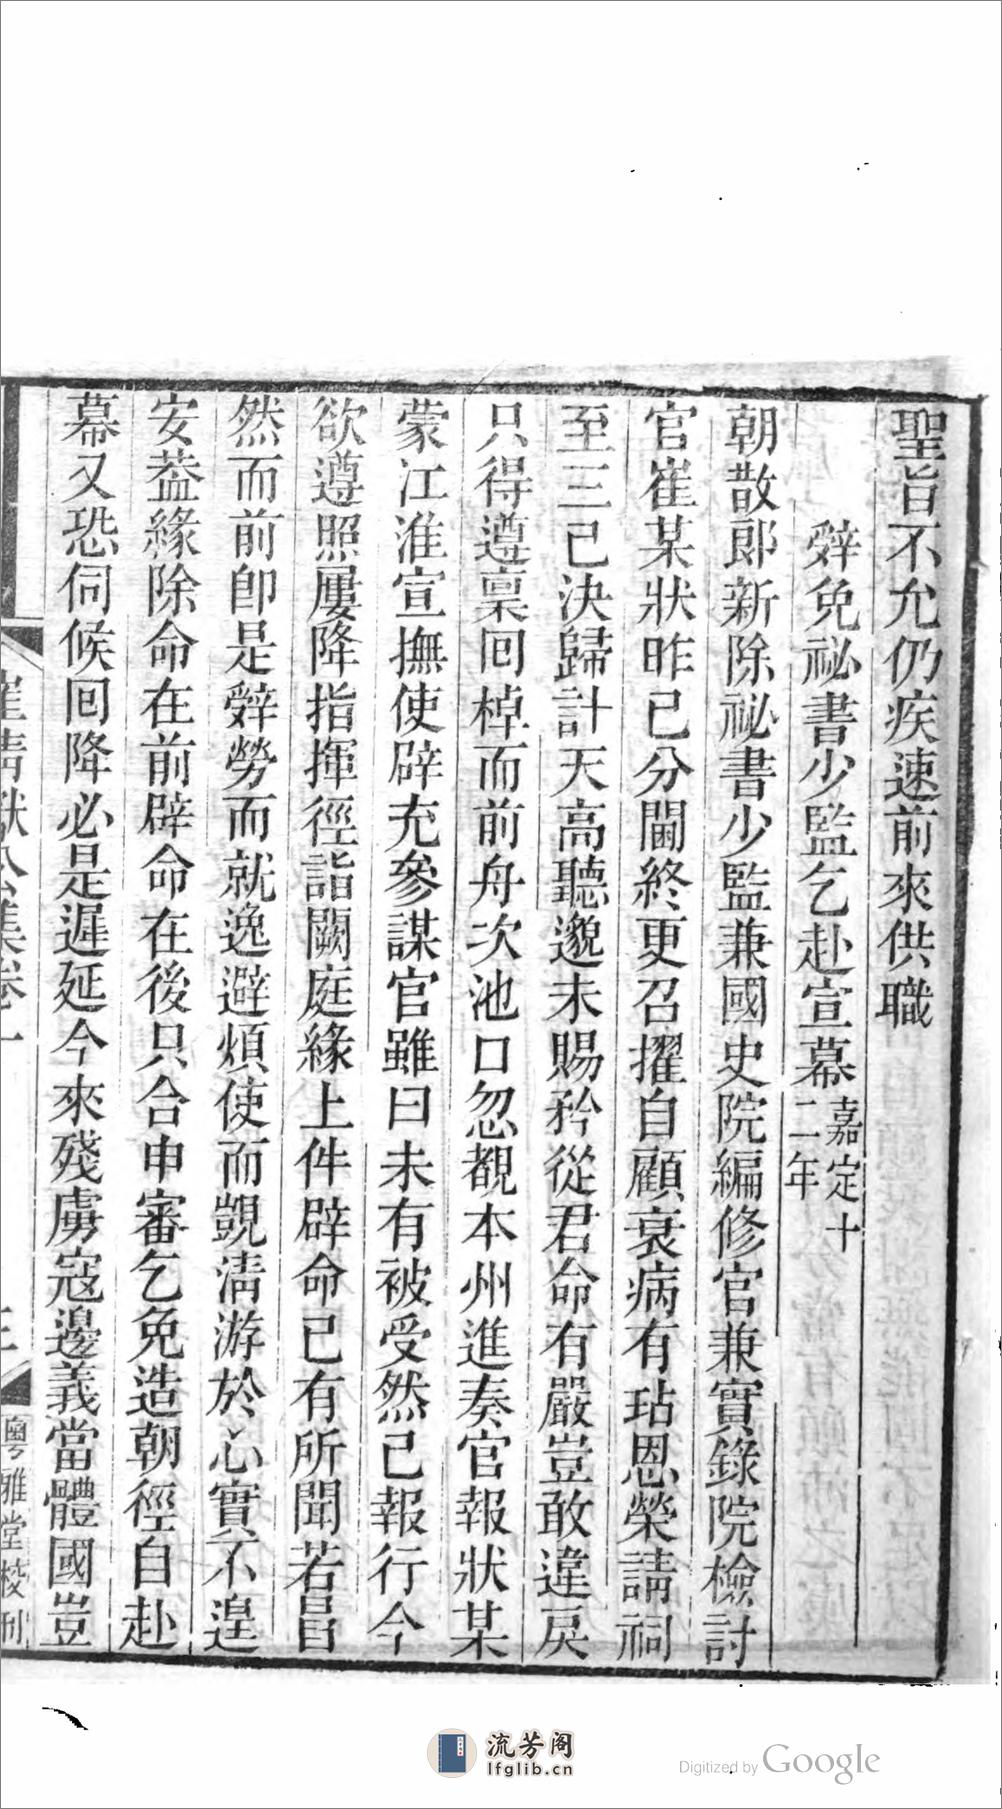 聖旨不允仍疾速前來供職
辤免祕書少監乞赴宣幕嘉定十二年
朝散郎新除祕書少監兼國史院編修官兼實錄院檢討
官崔某狀昨已分閫終更召擢自顧衰病有玷恩榮請祠
至三已決歸計天高聽邈未賜矜從君命有嚴豈敢違戾
只得遵稟回棹而前舟次池口忽覩本州進奏官報狀某
蒙江淮宣撫使辟充參謀官雖曰未有被受然已報行今
欲遵照屢降指揮徑詣闕庭緣上件辟命已有所聞若冒
然而前卽是辤勞而就逸避煩使而覬清游於心實不遑
安葢緣除命在前辟命在後只合申審乞免造朝徑自赴
幕又恐伺候回降必是遲延今來殘虜寇邊義當體國豈
崔清獻公集卷一
三
粵雅堂校刊
流芳阁
lfglib.cn
Digitized by Google